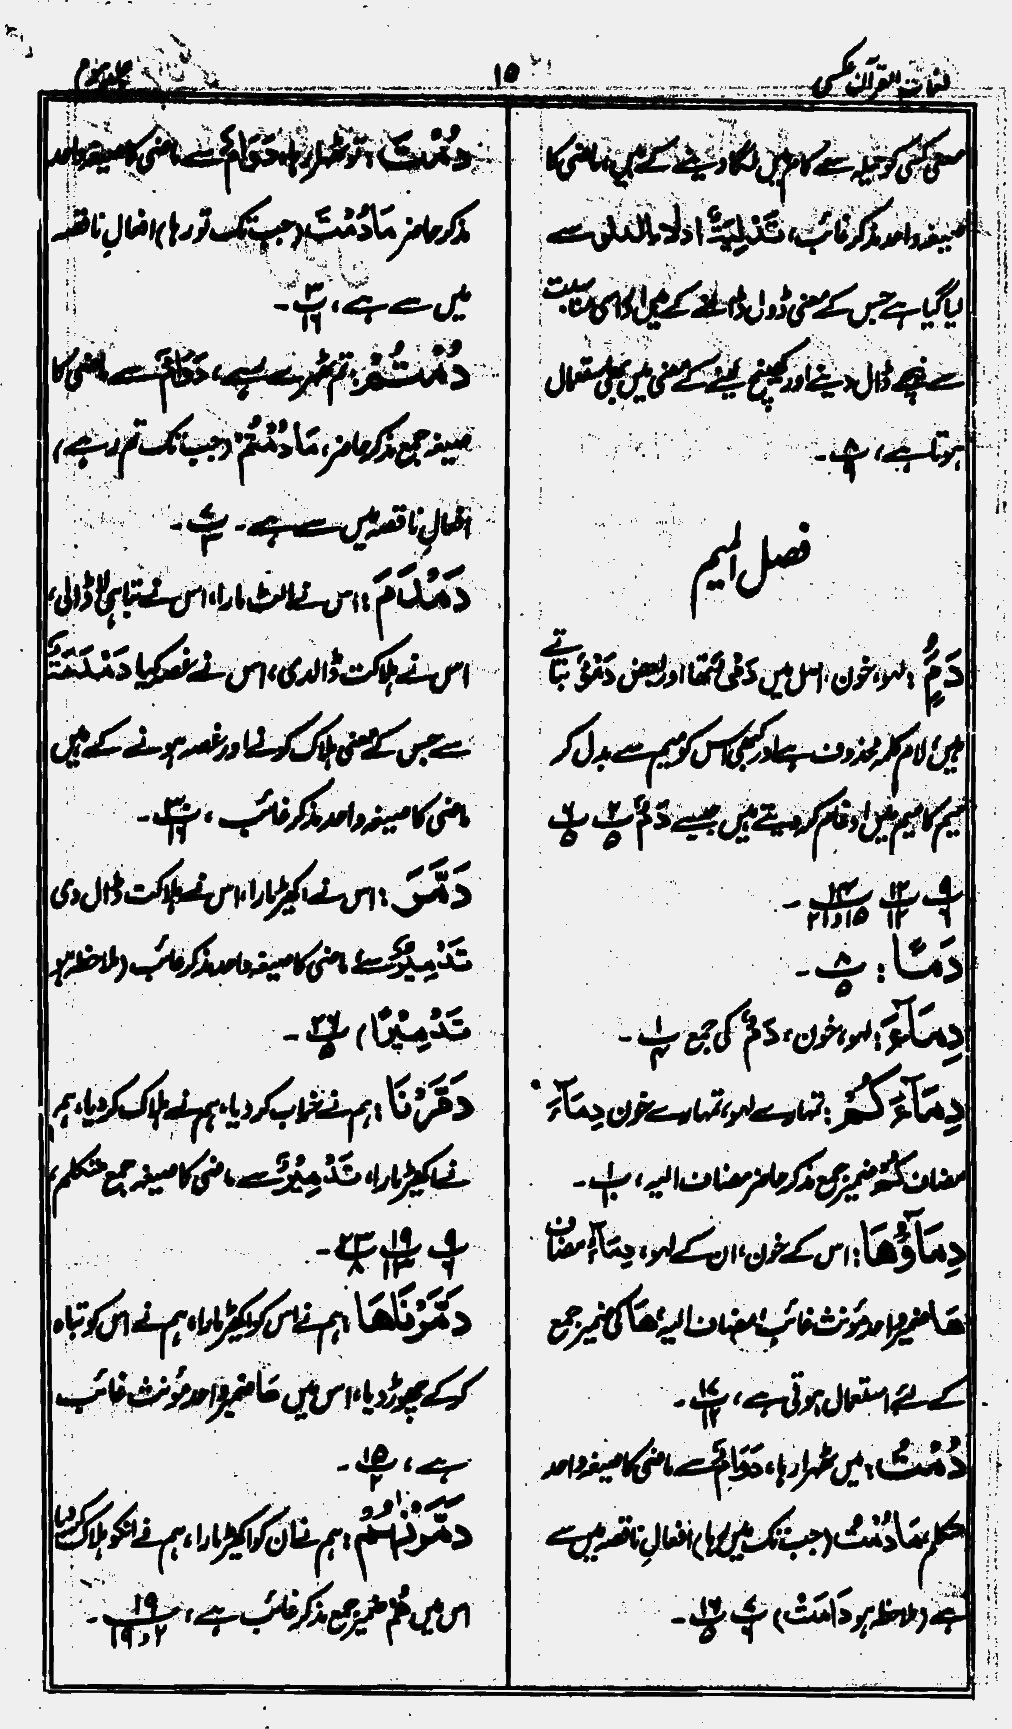 لغات القرآن عکسی
۱۵
جلد سوم
معنی کسی کو حیلہ سے کام میں لگا دینے کے ہیں، ماضی کا
صیغہ واحد مذکر غائب، تَدْلِیَۃٌ ادلاء الدلو سے
لیا گیا ہے جس کے معنی ڈول ڈالنے کے ہیں اور اسی مناسبت
سے نیچے ڈال دینے اور کھینچ لینے کے معنی میں بھی استعمال
ہوتا ہے، پ ۸/۹ ۔
فصل المیم
دَمٌ : لہو، خون، اصل میں دَمْیٌ تھا اور بعض دَمَوٌ بتاتے
ہیں لام کلمہ محذوف ہے اور کبھی اس کو میم سے بدل کر
میم کا میم میں ادغام کر دیتے ہیں جیسے دَمٌّ پ ۲/۵ پ ۶/۵
پ ۹/۶ پ ۱۲/۱۲ پ ۱۴/۱۵ و ۲۱ ۔
دَمًا : پ ۸/۵ ۔
دِمَآءَ : لہو، خون، دَمٌ کی جمع پ ۱/۴ ۔
دِمَآءَکُمْ : تمہارے لہو، تمہارے خون دِمَآءَ
مضاف کُمْ ضمیر جمع مذکر حاضر مضاف الیہ، پ ۱/۱۰ ۔
دِمَآؤُھَا : اس کے خون، ان کے لہو، دِمَآءُ مضاف
ھَا ضمیر واحد مؤنث غائب مضاف الیہ ھَا کی ضمیر جمع
کے لئے استعمال ہوتی ہے، پ ۱۷/۱۲ ۔
دُمْتُ : میں ٹھہرا رہا، دَوَامٌ سے ماضی کا صیغہ واحد
متکلم، مَادُمْتُ (جب تک میں رہا) افعالِ ناقصہ میں سے
ہے (ملاحظہ ہو دَامَتْ) پ ۷/۶ پ ۱۶/۵ ۔
دُمْتَ : تو ٹھہرا رہا، دَوَامٌ سے ماضی کا صیغہ واحد
مذکر حاضر مَادُمْتَ (جب تک تو رہا) افعالِ ناقصہ
میں سے ہے، پ ۳/۱۶ ۔
دُمْتُمْ : تم ٹھہرے رہے، دَوَامٌ سے ماضی کا
صیغہ جمع مذکر حاضر، مَا دُمْتُمْ (جب تک تم رہے)
افعالِ ناقصہ میں سے ہے ۔ پ ۷/۳ ۔
دَمْدَمَ : اس نے الٹ مارا، اس نے تباہی لا ڈالی،
اس نے ہلاکت ڈالدی، اس نے غصہ کیا دَمْدَمَۃٌ
سے جس کے معنی ہلاک کرنے اور غصہ ہونے کے ہیں
ماضی کا صیغہ واحد مذکر غائب ، پ ۳۰/۱۶ ۔
دَمَّرَ : اس نے اکھیڑ مارا، اس نے ہلاکت ڈال دی
تَدْمِیْرٌ سے ماضی کا صیغہ واحد مذکر غائب (ملاحظہ ہو
تَدْمِیْرًا) پ ۲۶/۵ ۔
دَمَّرْنَا : ہم نے خراب کر دیا، ہم نے ہلاک کر دیا، ہم
نے اکھیڑ مارا، تَدْمِیْرٌ سے ماضی کا صیغہ جمع متکلم،
پ ۹/۶ پ ۱۹/۱۳ پ ۲۳/۸ ۔
دَمَّرْنَاھَا : ہم نے اس کو اکھیڑ مارا، ہم نے اس کو تباہ
کر کے چھوڑ دیا، اس میں ھَا ضمیر واحد مؤنث غائب
ہے، پ ۱۵/۲ ۔
دَمَّرْنٰھُمْ : ہم نے ان کو اکھیڑ مارا، ہم نے انکو ہلاک کر دیا
اس میں ھُمْ ضمیر جمع مذکر غائب ہے، پ ۱۹/۲ و ۱۹ ۔